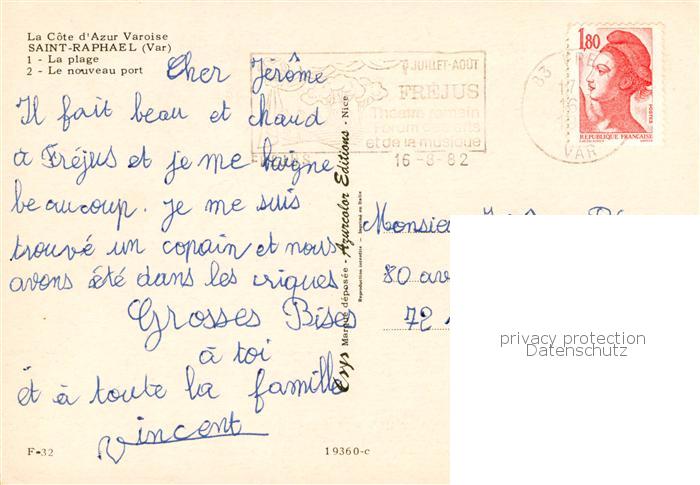 La Côte d'Azur Varoise
SAINT-RAPHAEL (Var)
1 - La plage
2 - Le nouveau port
Cher Jérôme
Il fait beau et chaud
à Fréjus et je me baigne
beaucoup. je me suis
trouvé un copain et nous
avons été dans les criques
Grosses Bises
à toi
et à toute la famille
Vincent
F-32
19360-c
Marque déposée - Azurcolor Editions - Nice
Reproduction interdite - Imprimé en Italie
JUILLET-AOÛT
FRÉJUS
Théâtre romain
Forum des arts
et de la musique
16-8-82
83
VAR
1,80
POSTES
REPUBLIQUE FRANÇAISE
Monsieu
80 av
72
privacy protection
Datenschutz